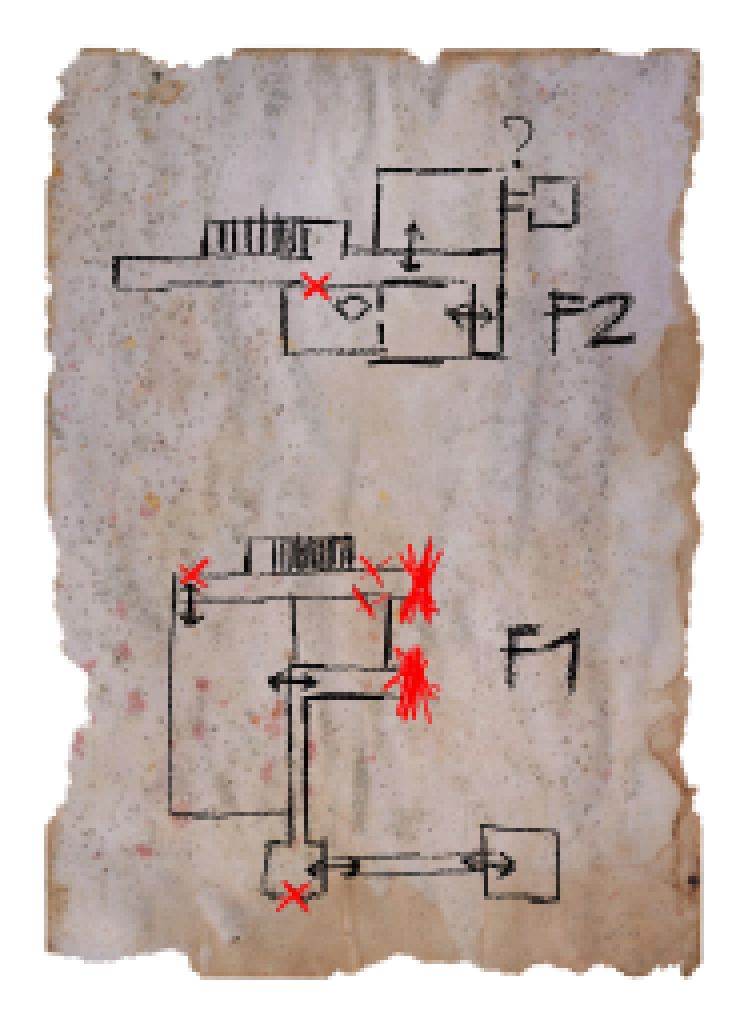 ?
F2
F1